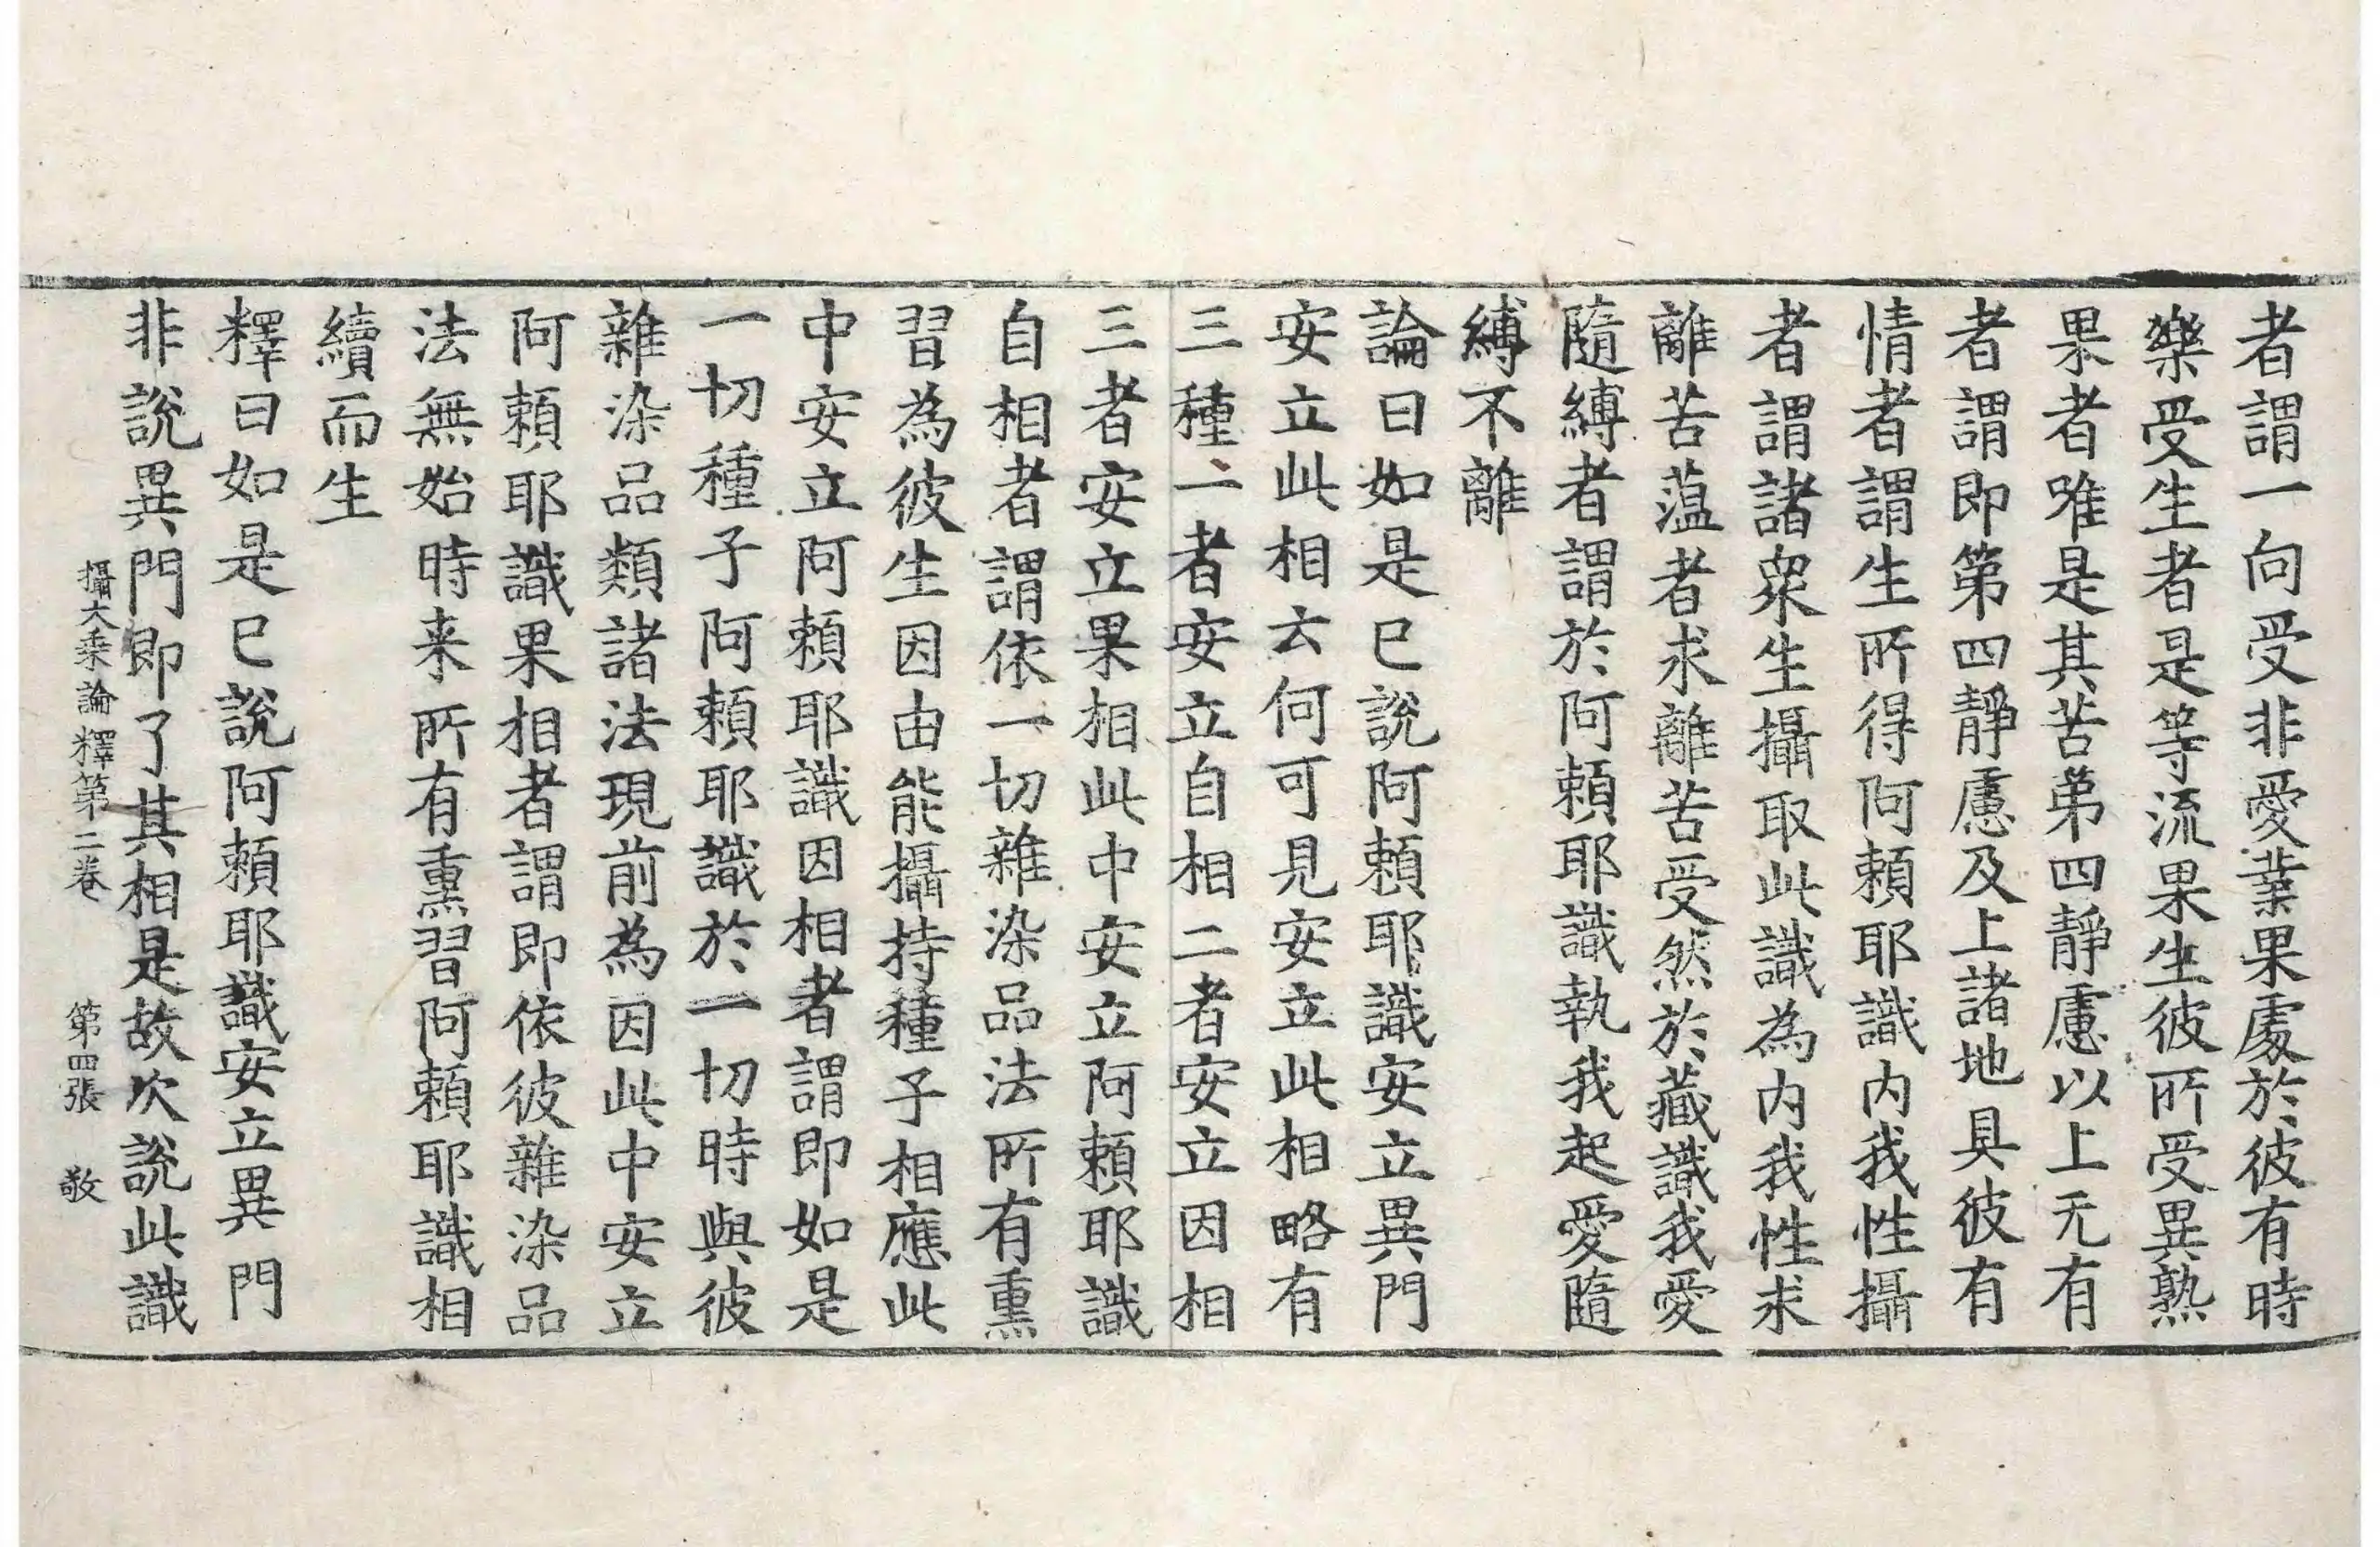 者謂一向受非愛業果處於彼有時
樂受生者是等流果生彼所受異熟
果者唯是其苦第四靜慮以上无有
者謂即第四靜慮及上諸地具彼有
情者謂生所得阿頼耶識内我性攝
者謂諸衆生攝取此識為内我性求
離苦薀者求離苦受然於藏識我愛
隨縛者謂於阿頼耶識執我起愛隨
縛不離
論曰如是已說阿頼耶識安立異門
安立此相云何可見安立此相略有
三種一者安立自相二者安立因相
三者安立果相此中安立阿頼耶識
自相者謂依一切雜染品法所有熏
習為彼生因由能攝持種子相應此
中安立阿頼耶識因相者謂即如是
一切種子阿頼耶識於一切時與彼
雜染品類諸法現前為因此中安立
阿頼耶識果相者謂即依彼雜染品
法無始時来所有熏習阿頼耶識相
續而生
釋曰如是已說阿頼耶識安立異門
非說異門即了其相是故次說此識
攝大乘論釋第二卷 第四張 敬